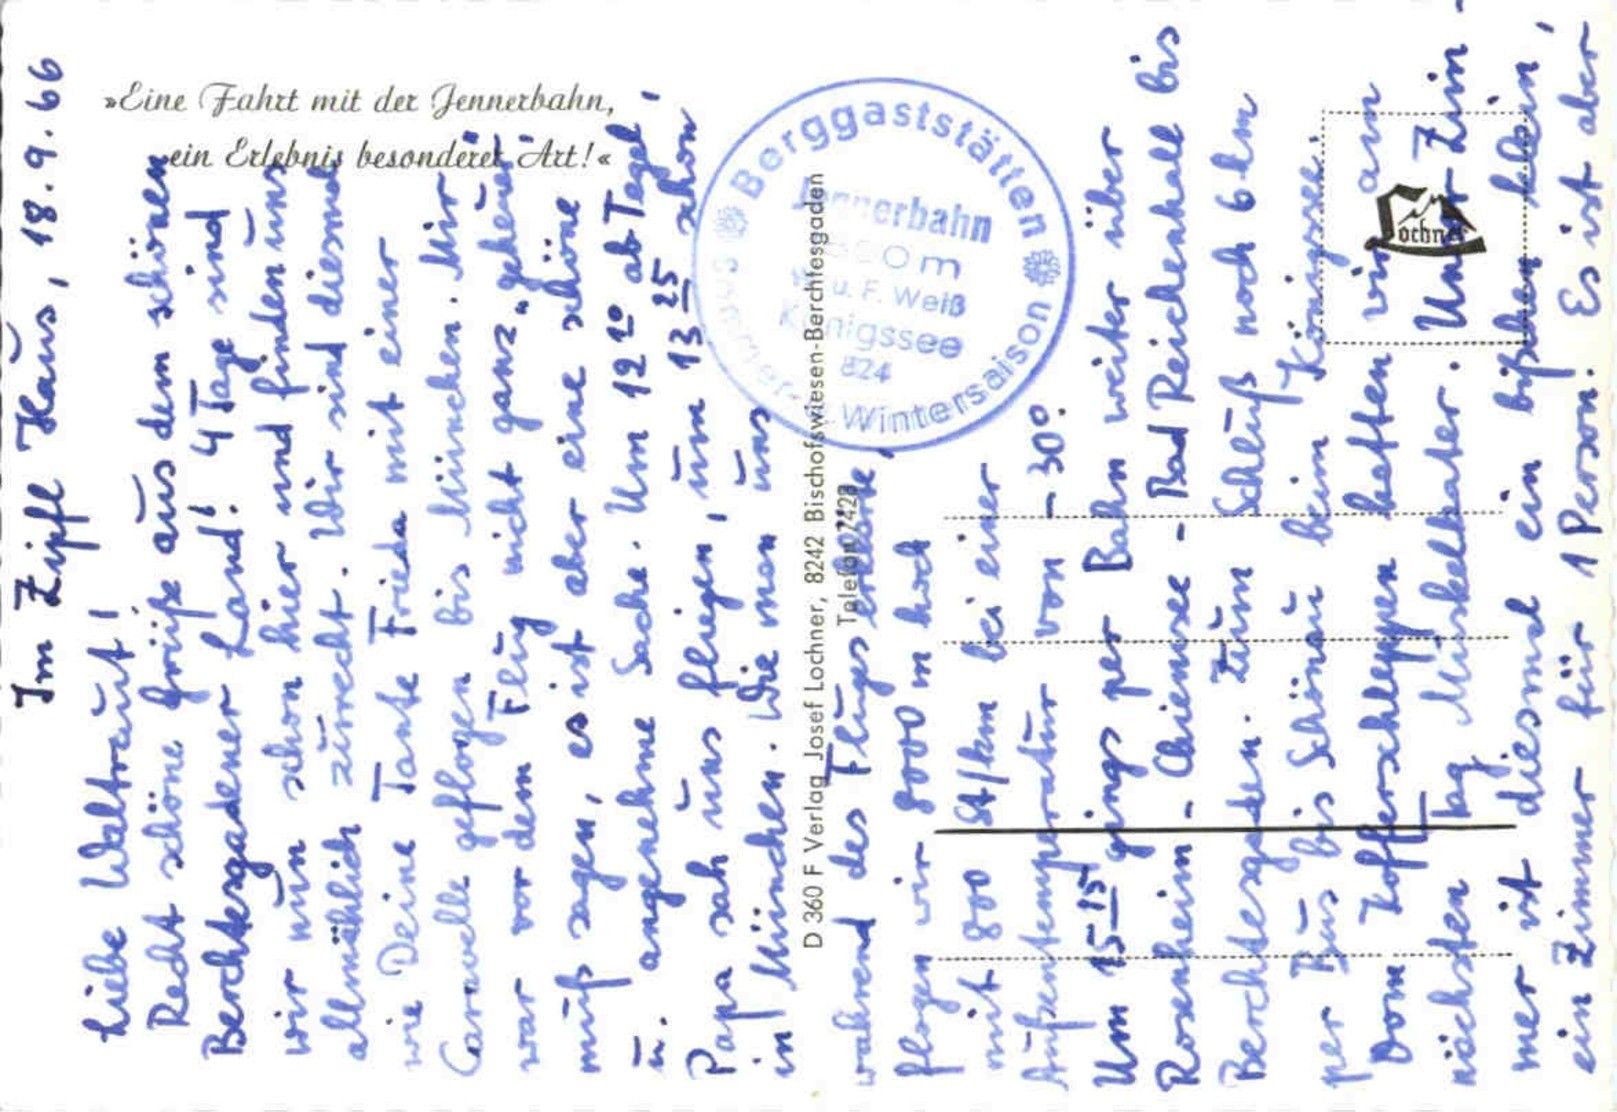 »Eine Fahrt mit der Jennerbahn,
ein Erlebnis besonderer Art!«
Im Zipfl Haus, 18.9.66
Liebe Waltraut!
Recht schöne Grüße aus dem schönen
Berchtesgadener Land! 4 Tage sind
wir nun schon hier und finden uns
allmählich zurecht. Wir sind diesmal
wie Deine Tante Frieda mit einer
Caravelle geflogen bis München. Mir
war vor dem Flug nicht ganz „geheuer"
muß sagen, es ist aber eine schöne
u. angenehme Sache. Um 12¹⁰ ab Tegel,
Papa sah uns fliegen, um 13²⁵ schon
in München. Wie man uns
während des Fluges erklärte,
flogen wir 8000 m hoch
mit 800 St/km bei einer
Außentemperatur von -30°.
Um 15¹⁵ gings per Bahn weiter über
Rosenheim - Chiemsee - Bad Reichenhall bis
Berchtesgaden. Zum Schluß noch 6 km
per Bus bis Schönau beim Königssee.
Vom Kofferschleppen hatten wir am
nächsten Tag Muskelkater. Unser Zim-
mer ist diesmal ein bißchen klein,
ein Zimmer für 1 Person. Es ist aber
D 360 F Verlag Josef Lochner, 8242 Bischofswiesen-Berchtesgaden
Telefon 7423
Berggaststätten
Jennerbahn
m
u. F. Weiß
Königssee
824
Wintersaison
Lochner